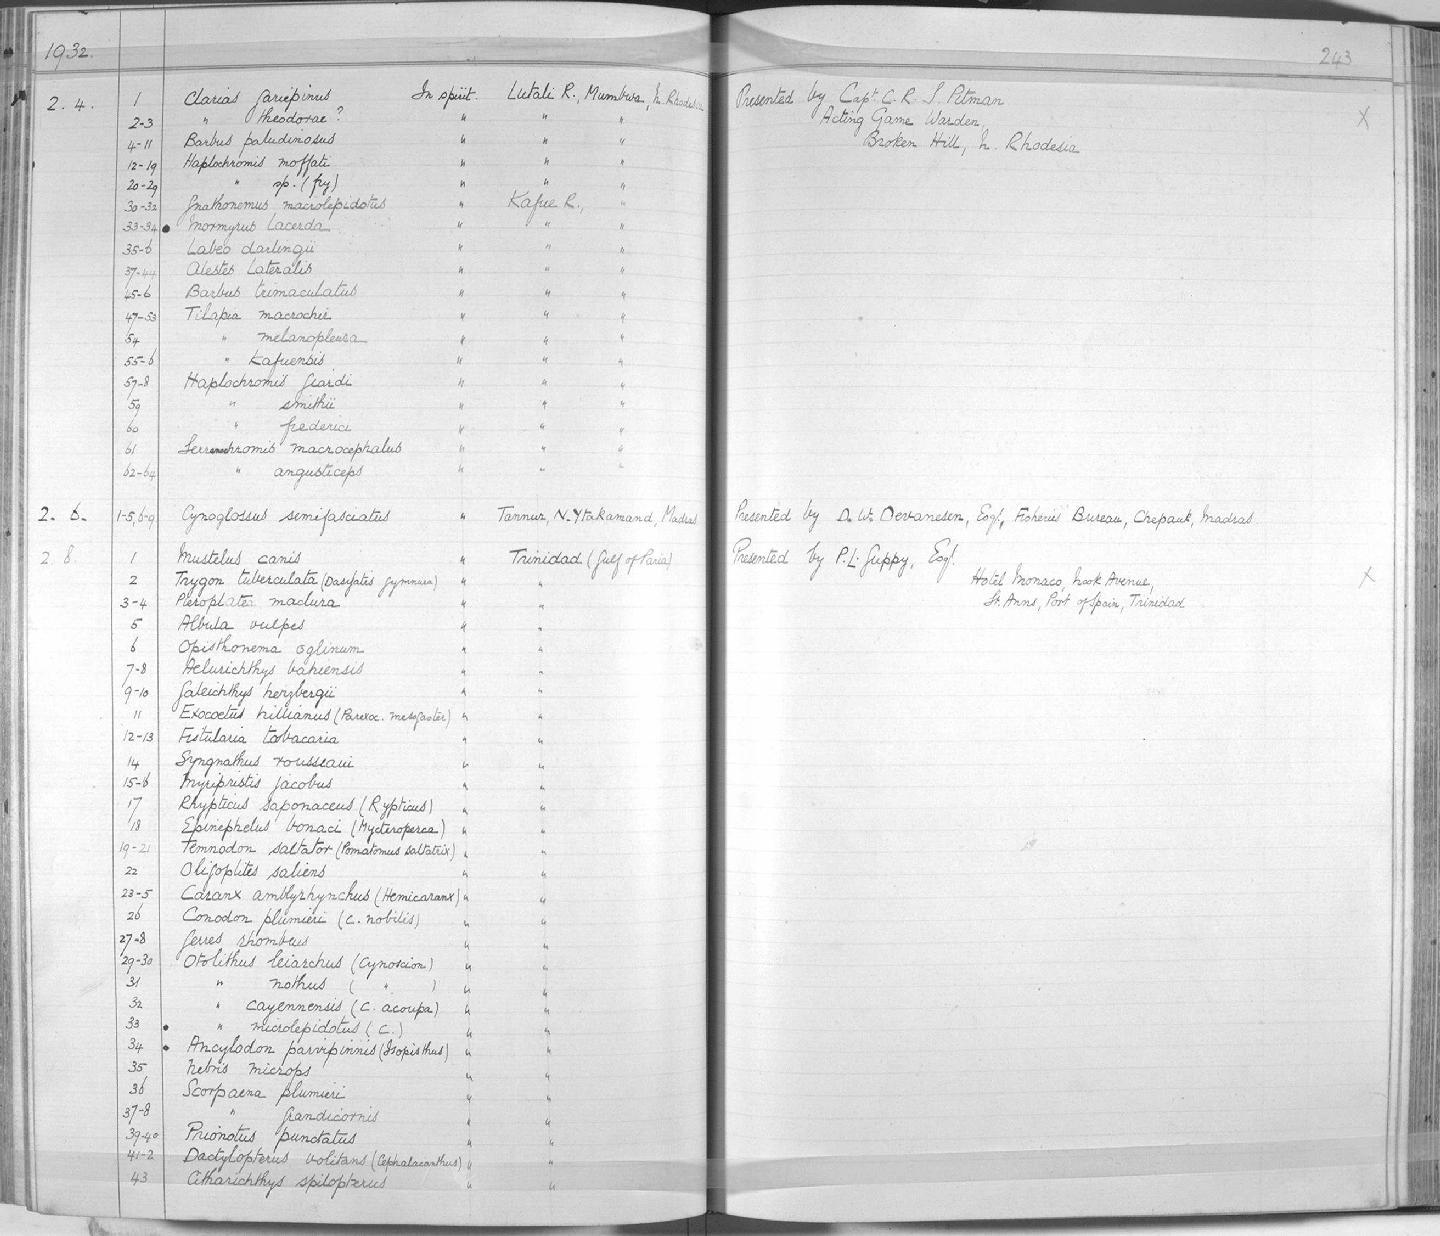 1932.
243
2. 4. 1 Clarias gariepinus In spirit. Lutali R., Mumbwa, N. Rhodesia Presented by Capt. C. R. S. Pitman
2-3 " theodorae ? " " " Acting Game Warden,
4-11 Barbus paludinosus " " " Broken Hill, N. Rhodesia
12-19 Haplochromis moffati " " "
20-29 " sp. (fry) " " "
30-32 Gnathonemus macrolepidotus " Kafue R., "
33-34 Mormyrus lacerda " " "
35-6 Labeo darlingii " " "
37-44 Alestes lateralis " " "
45-6 Barbus trimaculatus " " "
47-53 Tilapia macrochir " " "
54 " melanopleura " " "
55-6 " Kafuensis " " "
57-8 Haplochromis giardi " " "
59 " smithii " " "
60 " frederici " " "
61 Serranochromis macrocephalus " " "
62-64 " angusticeps " " "
2. 6. 1-5, 6-9 Cynoglossus semifasciatus " Tannur, N. Ytakamand, Madras Presented by D. W. Devanesen, Esq., Fisheries Bureau, Chepauk, Madras.
2 8 1 Mustelus canis " Trinidad (Gulf of Paria) Presented by P. L. Guppy, Esq.
2 Trygon tuberculata (Dasyatis gymnura) " " Hotel Monaco, Nook Avenue,
3-4 Pteroplatea maclura " " St. Anns, Port of Spain, Trinidad
5 Albula vulpes " "
6 Opisthonema oglinum " "
7-8 Aelurichthys bahiensis " "
9-10 Galeichthys herzbergii " "
11 Exocoetus hillianus (Parexoc. mesogaster) " "
12-13 Fistularia tabacaria " "
14 Syngnathus rousseaui " "
15-6 Myripristis jacobus " "
17 Rhypticus saponaceus (Rypticus) " "
18 Epinephelus bonaci (Mycteroperca) " "
19-21 Temnodon saltator (Pomatomus saltatrix) " "
22 Oligoplites saliens " "
23-5 Caranx amblyrhynchus (Hemicaranx) " "
26 Conodon plumieri (C. nobilis) " "
27-8 Gerres rhombeus " "
29-30 Otolithus leiarchus (Cynoscion) " "
31 " nothus ( " ) " "
32 " cayennensis (C. acoupa) " "
33 " microlepidotus (C.) " "
34 Ancylodon parvipinnis (Isopisthus) " "
35 Nebris microps " "
36 Scorpaena plumieri " "
37-8 " grandicornis " "
39-40 Prionotus punctatus " "
41-2 Dactylopterus volitans (Cephalacanthus) " "
43 Citharichthys spilopterus " "